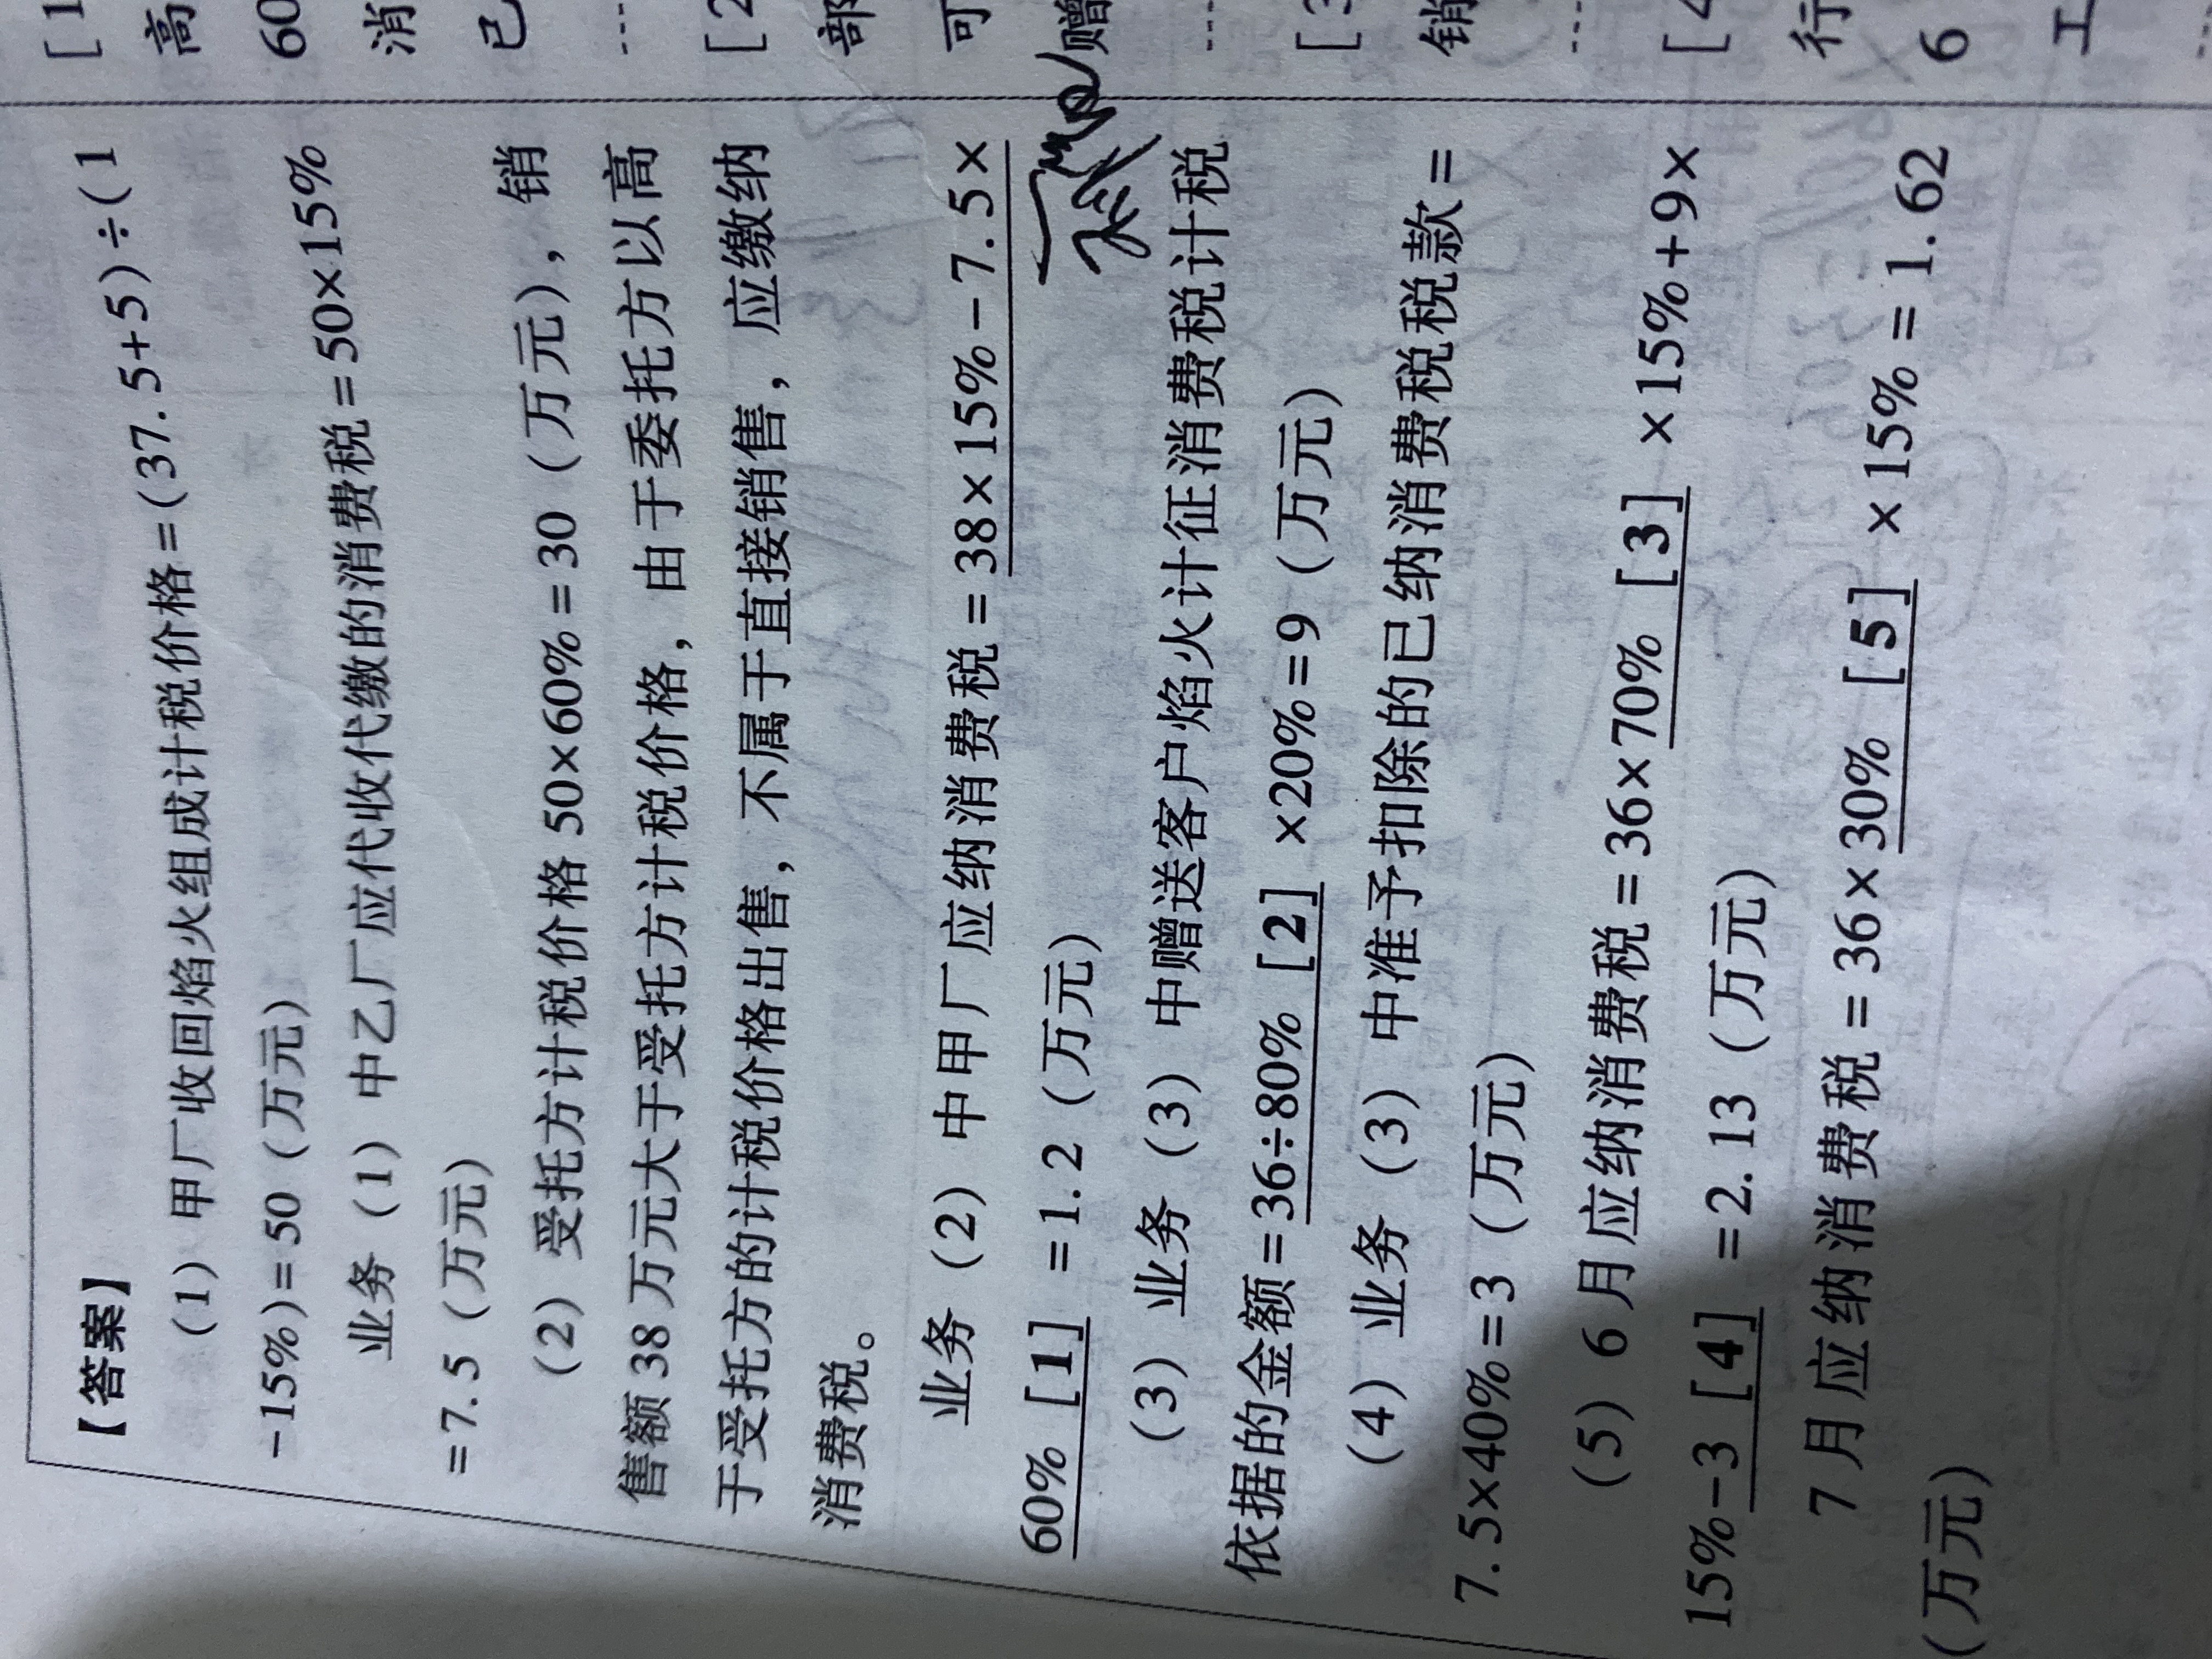 【答案】
(1) 甲厂收回焰火组成计税价格=(37.5+5)÷(1
-15%)=50 (万元)
业务 (1) 中乙厂应代收代缴的消费税=50×15%
=7.5 (万元)
(2) 受托方计税价格 50×60%=30 (万元), 销
售额 38 万元大于受托方计税价格, 由于委托方以高
于受托方的计税价格出售, 不属于直接销售, 应缴纳
消费税。
业务 (2) 中甲厂应纳消费税=38×15%-7.5×
60% [1] =1.2 (万元)
(3) 业务 (3) 中赠送客户焰火计征消费税计税
依据的金额=36÷80% [2] ×20%=9 (万元)
(4) 业务 (3) 中准予扣除的已纳消费税税款=
7.5×40%=3 (万元)
(5) 6 月应纳消费税=36×70% [3] ×15%+9×
15%-3 [4] =2.13 (万元)
7 月应纳消费税=36×30% [5] ×15%=1.62
(万元)
[1
高
60
消
已
[2
部
可
赠
[3
销
[4
行
6
工